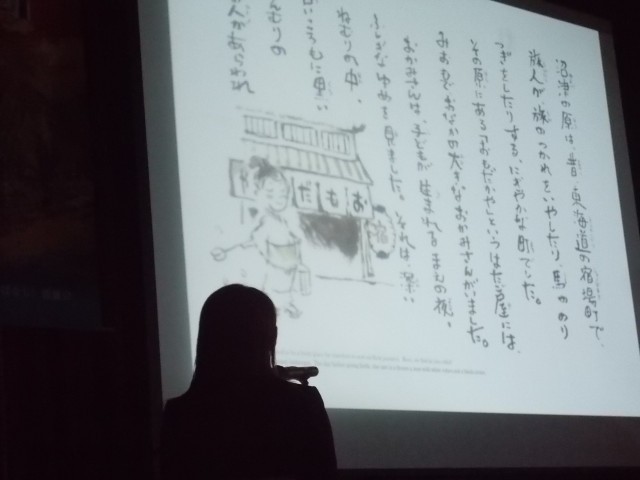 沼津の原は、昔、東海道の宿場町で、
旅人が旅のつかれをいやしたり、馬ののり
つぎをしたりする、にぎやかな町でした。
その原にある「おもだかや」というはたご屋には、
みおもで、おなかの大きなおかみさんがいました。
おかみさんは、子どもが生まれるまえの夜、
ふしぎなゆめを見ました。それは、深い
ねむりの中、
いころもに黒い
んむりの
人があらわれ
おもだ
宿